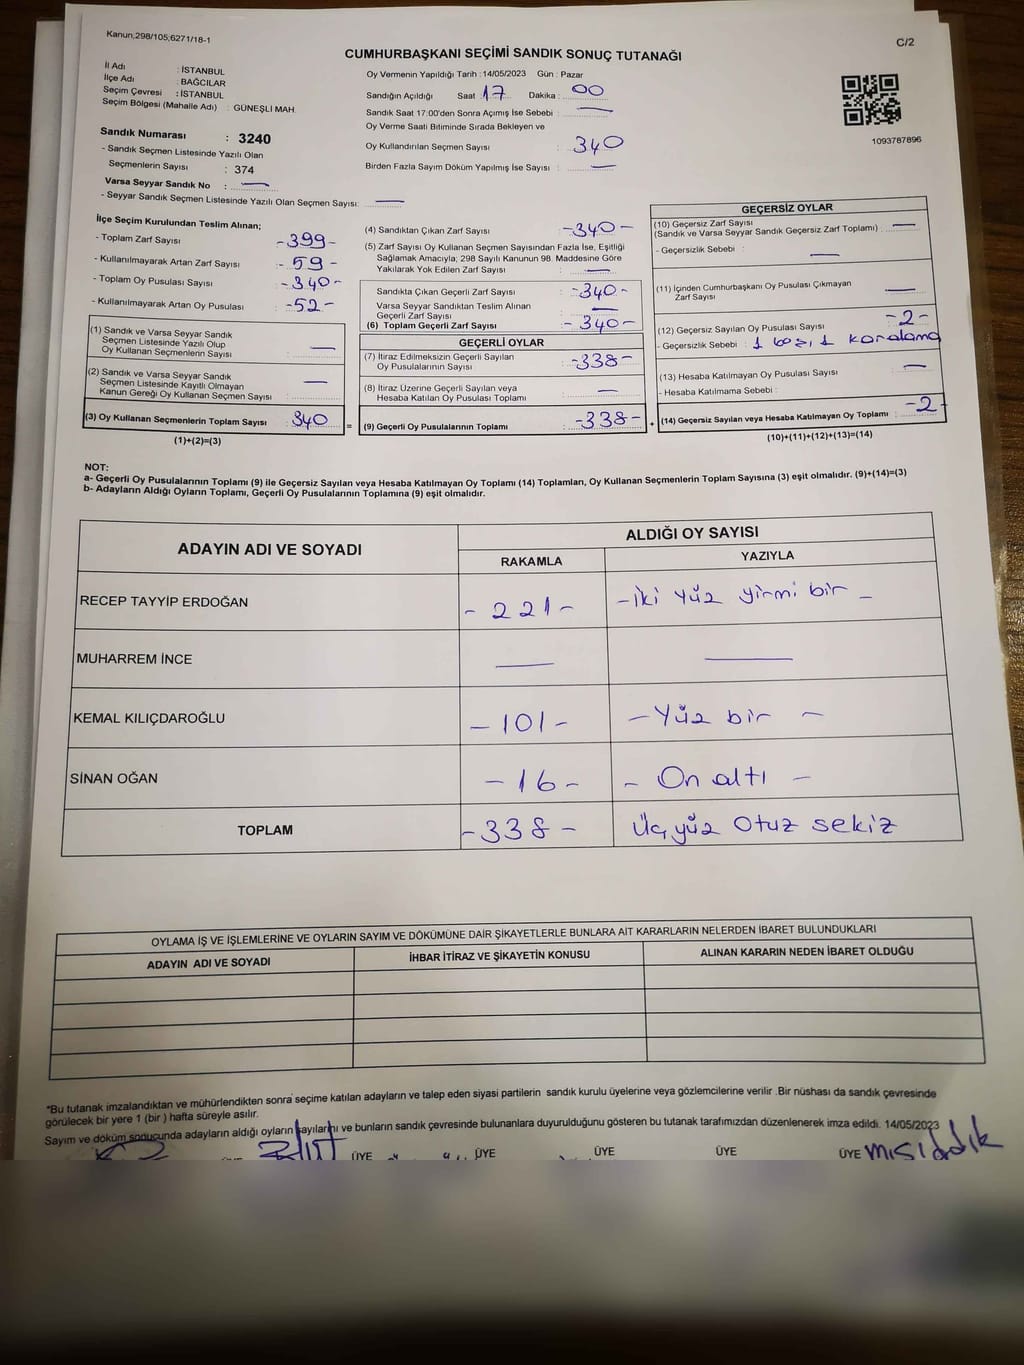 Kanun,298/105;6271/18-1
C/2
CUMHURBAŞKANI SEÇİMİ SANDIK SONUÇ TUTANAĞI
İl Adı : İSTANBUL
İlçe Adı : BAĞCILAR
Seçim Çevresi : İSTANBUL
Seçim Bölgesi (Mahalle Adı) : GÜNEŞLİ MAH.
Sandık Numarası : 3240
- Sandık Seçmen Listesinde Yazılı Olan
Seçmenlerin Sayısı : 374
Varsa Seyyar Sandık No : —
- Seyyar Sandık Seçmen Listesinde Yazılı Olan Seçmen Sayısı: —
Oy Vermenin Yapıldığı Tarih :14/05/2023 Gün : Pazar
Sandığın Açıldığı Saat : 17 Dakika : 00
Sandık Saat 17:00'den Sonra Açımış İse Sebebi : —
Oy Verme Saati Bitiminde Sırada Bekleyen ve
Oy Kullandırılan Seçmen Sayısı : 340
Birden Fazla Sayım Döküm Yapılmış İse Sayısı : —
1093787896
İlçe Seçim Kurulundan Teslim Alınan;
- Toplam Zarf Sayısı : -399-
- Kullanılmayarak Artan Zarf Sayısı : -59-
- Toplam Oy Pusulası Sayısı : -340-
- Kullanılmayarak Artan Oy Pusulası : -52-
(1) Sandık ve Varsa Seyyar Sandık
Seçmen Listesinde Yazılı Olup
Oy Kullanan Seçmenlerin Sayısı : —
(2) Sandık ve Varsa Seyyar Sandık
Seçmen Listesinde Kayıtlı Olmayan
Kanun Gereği Oy Kullanan Seçmen Sayısı : —
(3) Oy Kullanan Seçmenlerin Toplam Sayısı : 340 =
(1)+(2)=(3)
(4) Sandıktan Çıkan Zarf Sayısı : -340-
(5) Zarf Sayısı Oy Kullanan Seçmen Sayısından Fazla İse, Eşitliği
Sağlamak Amacıyla; 298 Sayılı Kanunun 98. Maddesine Göre
Yakılarak Yok Edilen Zarf Sayısı : —
Sandıkta Çıkan Geçerli Zarf Sayısı : -340-
Varsa Seyyar Sandıktan Teslim Alınan
Geçerli Zarf Sayısı : —
(6) Toplam Geçerli Zarf Sayısı : -340-
GEÇERLİ OYLAR
(7) İtiraz Edilmeksizin Geçerli Sayılan
Oy Pusulalarının Sayısı : -338-
(8) İtiraz Üzerine Geçerli Sayılan veya
Hesaba Katılan Oy Pusulası Toplamı : —
(9) Geçerli Oy Pusulalarının Toplamı : -338- +
GEÇERSİZ OYLAR
(10) Geçersiz Zarf Sayısı
(Sandık ve Varsa Seyyar Sandık Geçersiz Zarf Toplamı) : —
- Geçersizlik Sebebi : —
(11) İçinden Cumhurbaşkanı Oy Pusulası Çıkmayan
Zarf Sayısı : —
(12) Geçersiz Sayılan Oy Pusulası Sayısı : -2-
- Geçersizlik Sebebi : 1 boş, 1 karalama
(13) Hesaba Katılmayan Oy Pusulası Sayısı : —
- Hesaba Katılmama Sebebi :
(14) Geçersiz Sayılan veya Hesaba Katılmayan Oy Toplamı : -2-
(10)+(11)+(12)+(13)=(14)
NOT:
a- Geçerli Oy Pusulalarının Toplamı (9) ile Geçersiz Sayılan veya Hesaba Katılmayan Oy Toplamı (14) Toplamları, Oy Kullanan Seçmenlerin Toplam Sayısına (3) eşit olmalıdır. (9)+(14)=(3)
b- Adayların Aldığı Oyların Toplamı, Geçerli Oy Pusulalarının Toplamına (9) eşit olmalıdır.
ADAYIN ADI VE SOYADI
ALDIĞI OY SAYISI
RAKAMLA YAZIYLA
RECEP TAYYİP ERDOĞAN - 221 - - iki yüz yirmi bir -
MUHARREM İNCE — —
KEMAL KILIÇDAROĞLU - 101 - - Yüz bir -
SİNAN OĞAN - 16 - - On altı -
TOPLAM - 338 - Üçyüz Otuz sekiz
OYLAMA İŞ VE İŞLEMLERİNE VE OYLARIN SAYIM VE DÖKÜMÜNE DAİR ŞİKAYETLERLE BUNLARA AİT KARARLARIN NELERDEN İBARET BULUNDUKLARI
ADAYIN ADI VE SOYADI İHBAR İTİRAZ VE ŞİKAYETİN KONUSU ALINAN KARARIN NEDEN İBARET OLDUĞU
*Bu tutanak imzalandıktan ve mühürlendikten sonra seçime katılan adayların ve talep eden siyasi partilerin sandık kurulu üyelerine veya gözlemcilerine verilir .Bir nüshası da sandık çevresinde
görülecek bir yere 1 (bir ) hafta süreyle asılır.
Sayım ve döküm sonucunda adayların aldığı oyların sayılarını ve bunların sandık çevresinde bulunanlara duyurulduğunu gösteren bu tutanak tarafımızdan düzenlenerek imza edildi. 14/05/2023
ÜYE ÜYE ÜYE ÜYE ÜYE